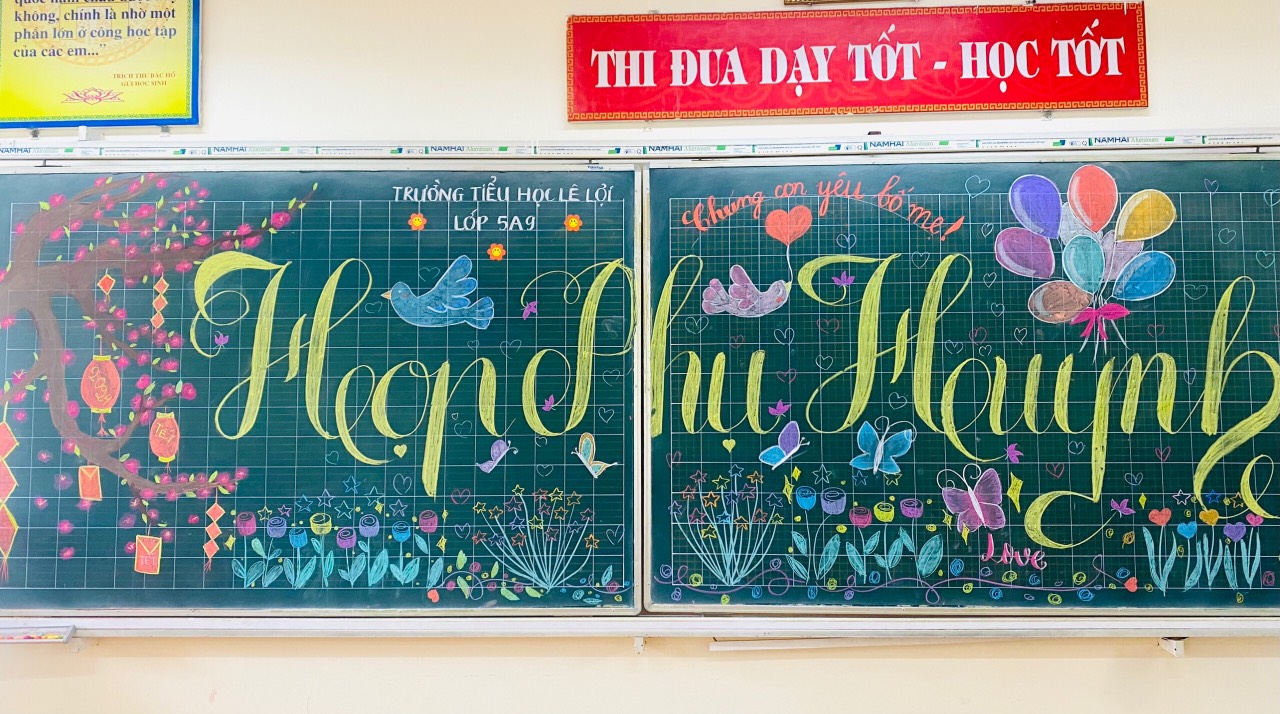 không, chính là nhờ một
phần lớn ở công học tập
của các em..."
TRÍCH THƯ BÁC HỒ
GỬI HỌC SINH
THI ĐUA DẠY TỐT - HỌC TỐT
NAMHAI Aluminum NAMHAI Aluminum NAMHAI Aluminum NAMHAI Aluminum NAMHAI Aluminum
TRƯỜNG TIỂU HỌC LÊ LỢI
LỚP 5A9
Chúng con yêu bố mẹ!
Họp Phụ Huynh
2024
TẾT
TẾT
Love